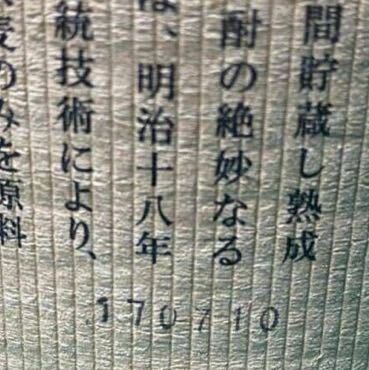 間貯蔵し熟成
酎の絶妙なる
は、明治十八年
統技術により、
麦のみを原料
170710